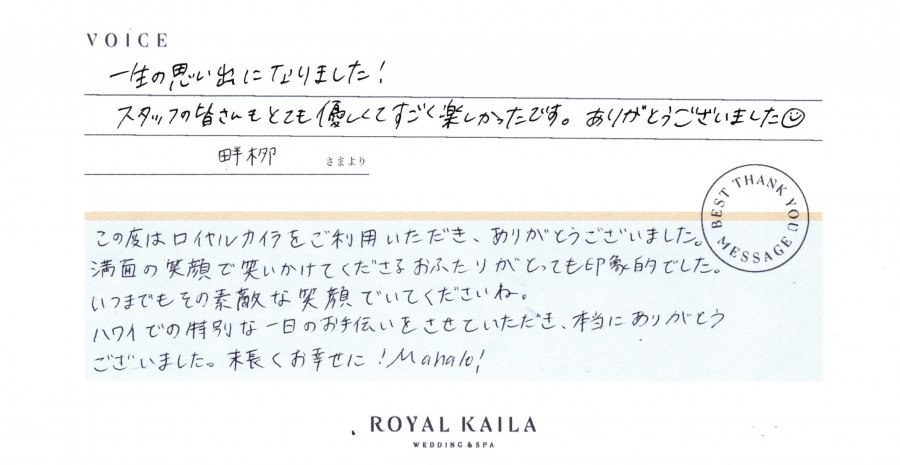 VOICE
一生の思い出になりました!
スタッフの皆さんもとても優しくてすごく楽しかったです。ありがとうございました☺
畔柳 さまより
BEST THANK YOU MESSAGE
この度はロイヤルカイラをご利用いただき、ありがとうございました。
満面の笑顔で笑いかけてくださるおふたりがとっても印象的でした。
いつまでもその素敵な笑顔でいてくださいね。
ハワイでの特別な一日のお手伝いをさせていただき、本当にありがとう
ございました。末長くお幸せに!Mahalo!
ROYAL KAILA
WEDDING & SPA